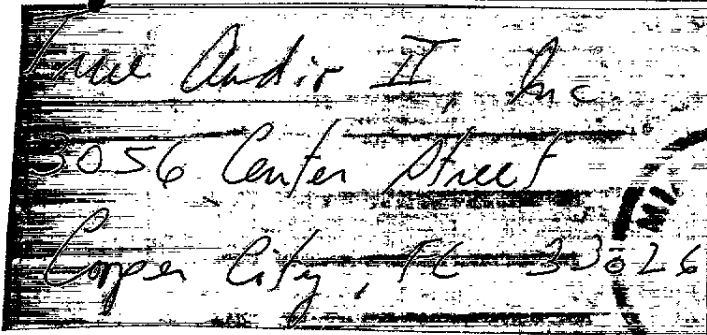 True Audio II, Inc.
3056 Center Street
Cooper City, FL 33026
MI